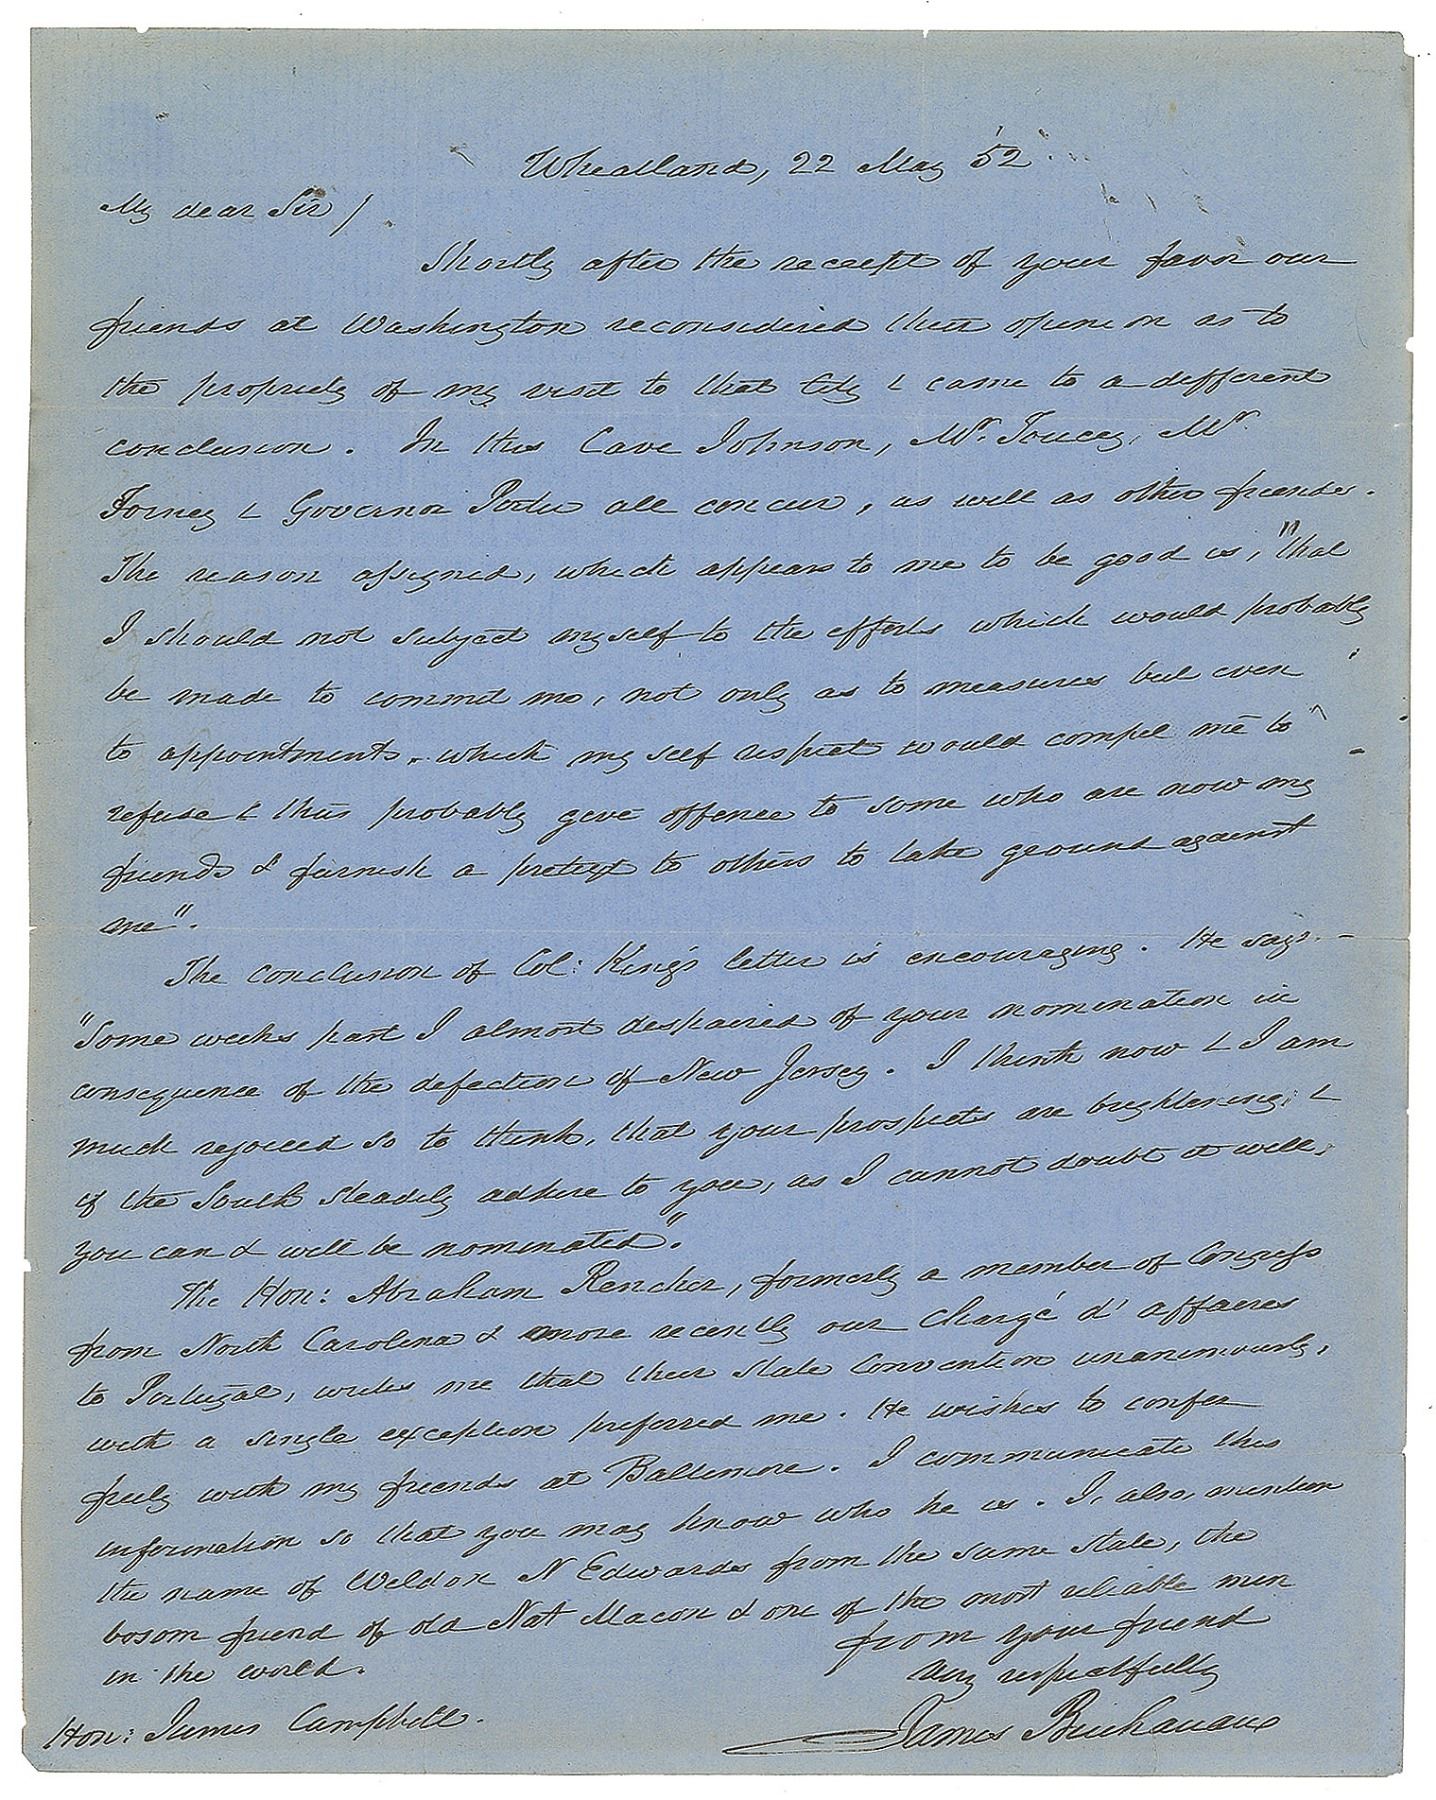 Wheatland, 22 May '52
My dear Sir /
Shortly after the receipt of your favor our
friends at Washington reconsidered their opinion as to
the propriety of my visit to that City & came to a different
conclusion. In this Cave Johnson, Mr. Toucey, Mr.
Forney & Governor Porter all concur, as well as other friends.
The reason assigned, which appears to me to be good is, "that
I should not subject myself to the efforts which would probably
be made to commit me, not only as to measures but even
to appointments, which my self respect would compel me to
refuse & thus probably give offence to some who are now my
friends & furnish a pretext to others to take ground against
me".
The conclusion of Col: King's letter is encouraging. He says.—
"Some weeks past I almost despaired of your nomination in
consequence of the defection of New Jersey. I think now & I am
much rejoiced so to think, that your prospects are brightening; &
if the South steadily adhere to you, as I cannot doubt it will,
you can & will be nominated".
The Hon: Abraham Rencher, formerly a member of Congress
from North Carolina & more recently our Chargé d'affaires
to Portugal, writes me that their State Convention unanimously,
with a single exception preferred me. He wishes to confer
freely with my friends at Baltimore. I communicate this
information so that you may know who he is. I, also, mention
the name of Weldon N Edwards from the same state, the
bosom friend of old Nat Macon & one of the most reliable men
in the world.
from your friend
very respectfully
James Buchanan
Hon: James Campbell.